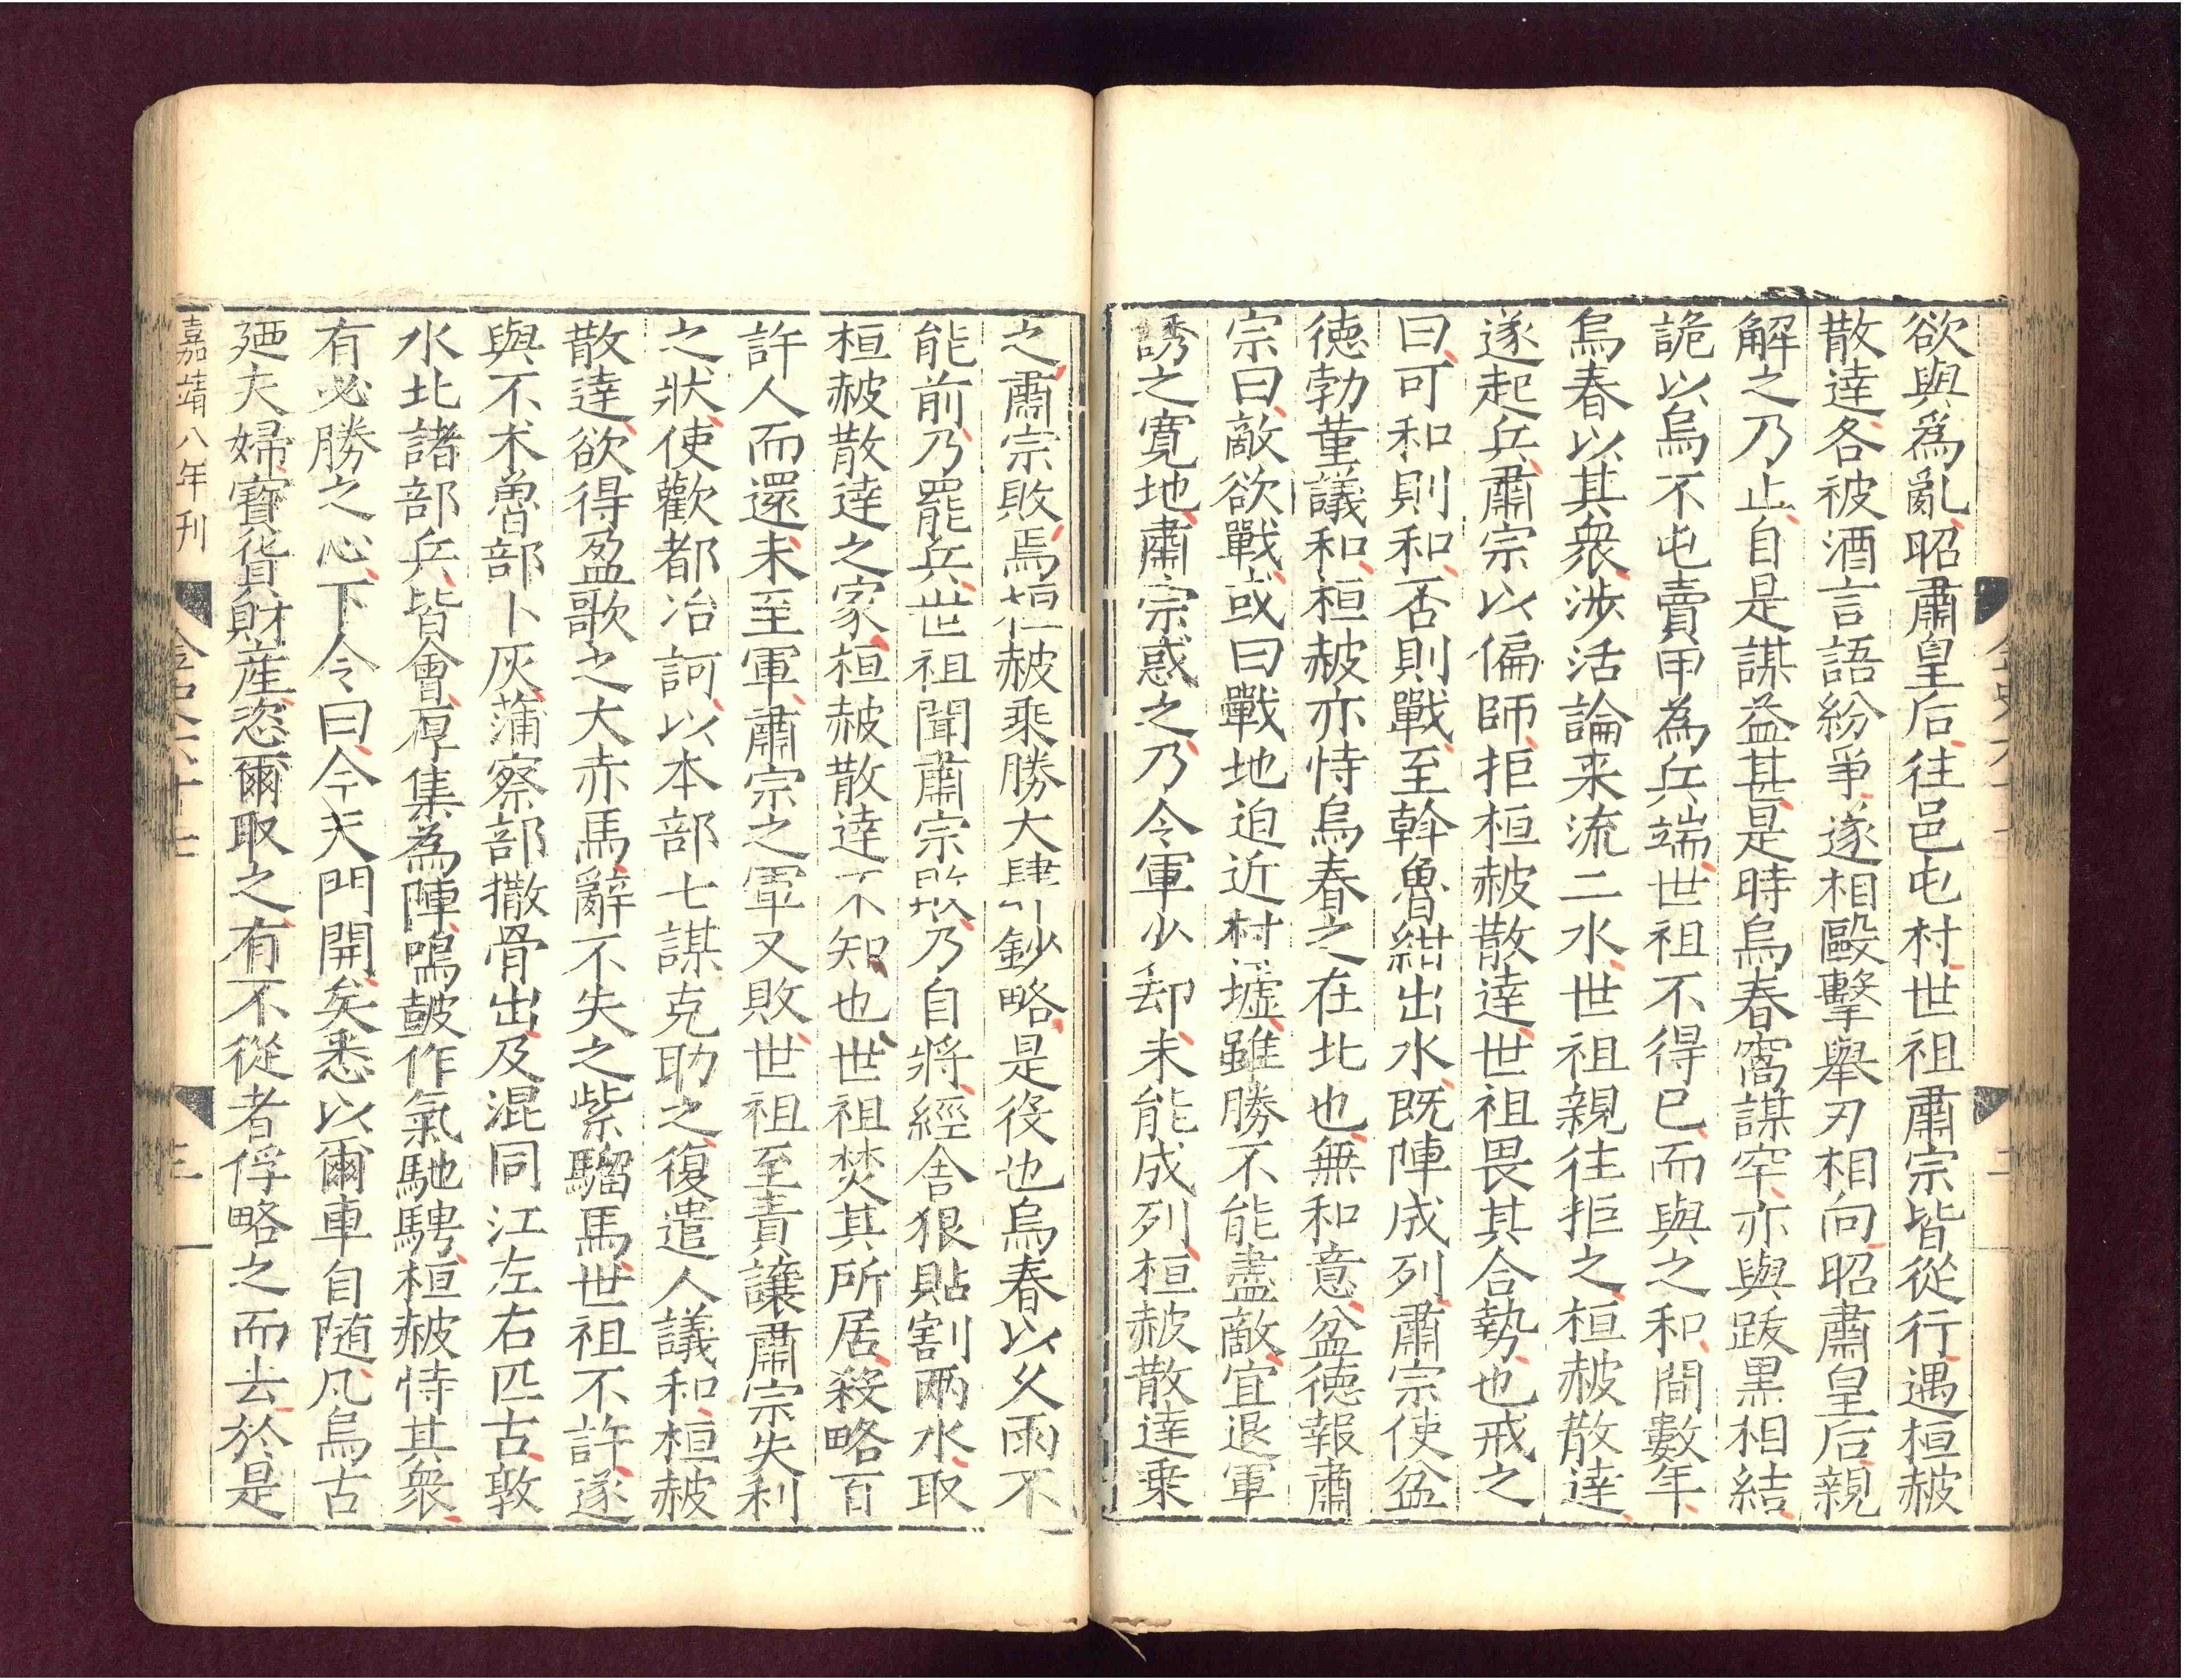 欲與爲亂昭肅皇后往邑屯村世祖肅宗皆從行遇桓赧
散達各被酒言語紛爭遂相毆擊舉刃相向昭肅皇后親
解之乃止自是謀益甚是時烏春窩謀罕亦與跋黑相結
詭以烏不屯賣甲為兵端世祖不得已而與之和間數年
烏春以其衆涉活論来流二水世祖親往拒之桓赧散達
遂起兵肅宗以偏師拒桓赧散達世祖畏其合勢也戒之
曰可和則和否則戰至斡魯紺出水既陣成列肅宗使盆
德勃菫議和桓赧亦恃烏春之在北也無和意盆德報肅
宗曰敵欲戰或曰戰地迫近村墟雖勝不能盡敵宜退軍
誘之寬地肅宗惑之乃令軍少却未能成列桓赧散達乗
之肅宗敗焉桓赧乗勝大肆鈔略是役也烏春以久雨不
能前乃罷兵世祖聞肅宗敗乃自將經舍很貼割兩水取
桓赧散達之家桓赧散達不知也世祖焚其所居殺略百
許人而還未至軍肅宗之軍又敗世祖至責讓肅宗失利
之狀使歡都冶訶以本部七謀克助之復遣人議和桓赧
散達欲得盈歌之大赤馬辭不失之紫騮馬世祖不許遂
與不术魯部卜灰蒲察部撒骨出及混同江左右匹古敦
水北諸部兵皆會厚集為陣鳴鼓作氣馳騁桓赧恃其衆
有必勝之心下令曰今天門開矣悉以爾車自随凡烏古
廼夫婦寳貨財産恣爾取之有不從者俘略之而去於是
嘉靖八年刊
金史六十七
三